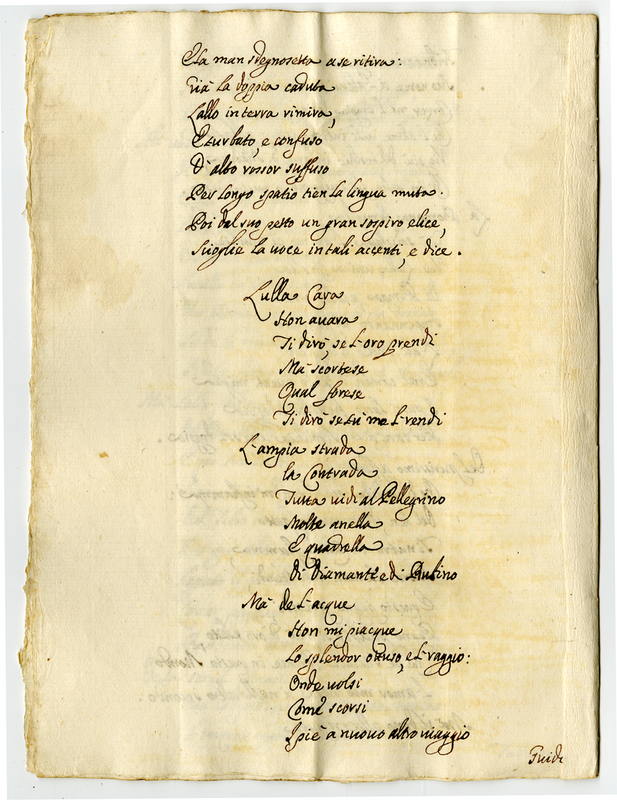 E la man sdegnosetta a se ritira:
Già la doppia caduta
Lallo in terra rimira,
E turbato, e confuso
D'alto rossor suffuso
Per longo spatio tien la lingua muta.
Poi dal suo petto un gran sospiro elice,
Scioglie la uoce in tali accenti, e dice.
Lulla Cara
Non auara
Ti dirò, se l'oro prendi
Mà scortese
Qual forese
Ti dirò se tù me'l rendi
L'ampia strada
la Contrada
Tutta uidi al Pellegrino
Molte anella
E quadrella
Di Diamanti e di Rubino
Mà de l'acque
Non mi piacque
Lo splendor ottuso, e'l raggio:
Onde uolsi
Come scorsi
I piè a nuouo altro uiaggio
Guidi